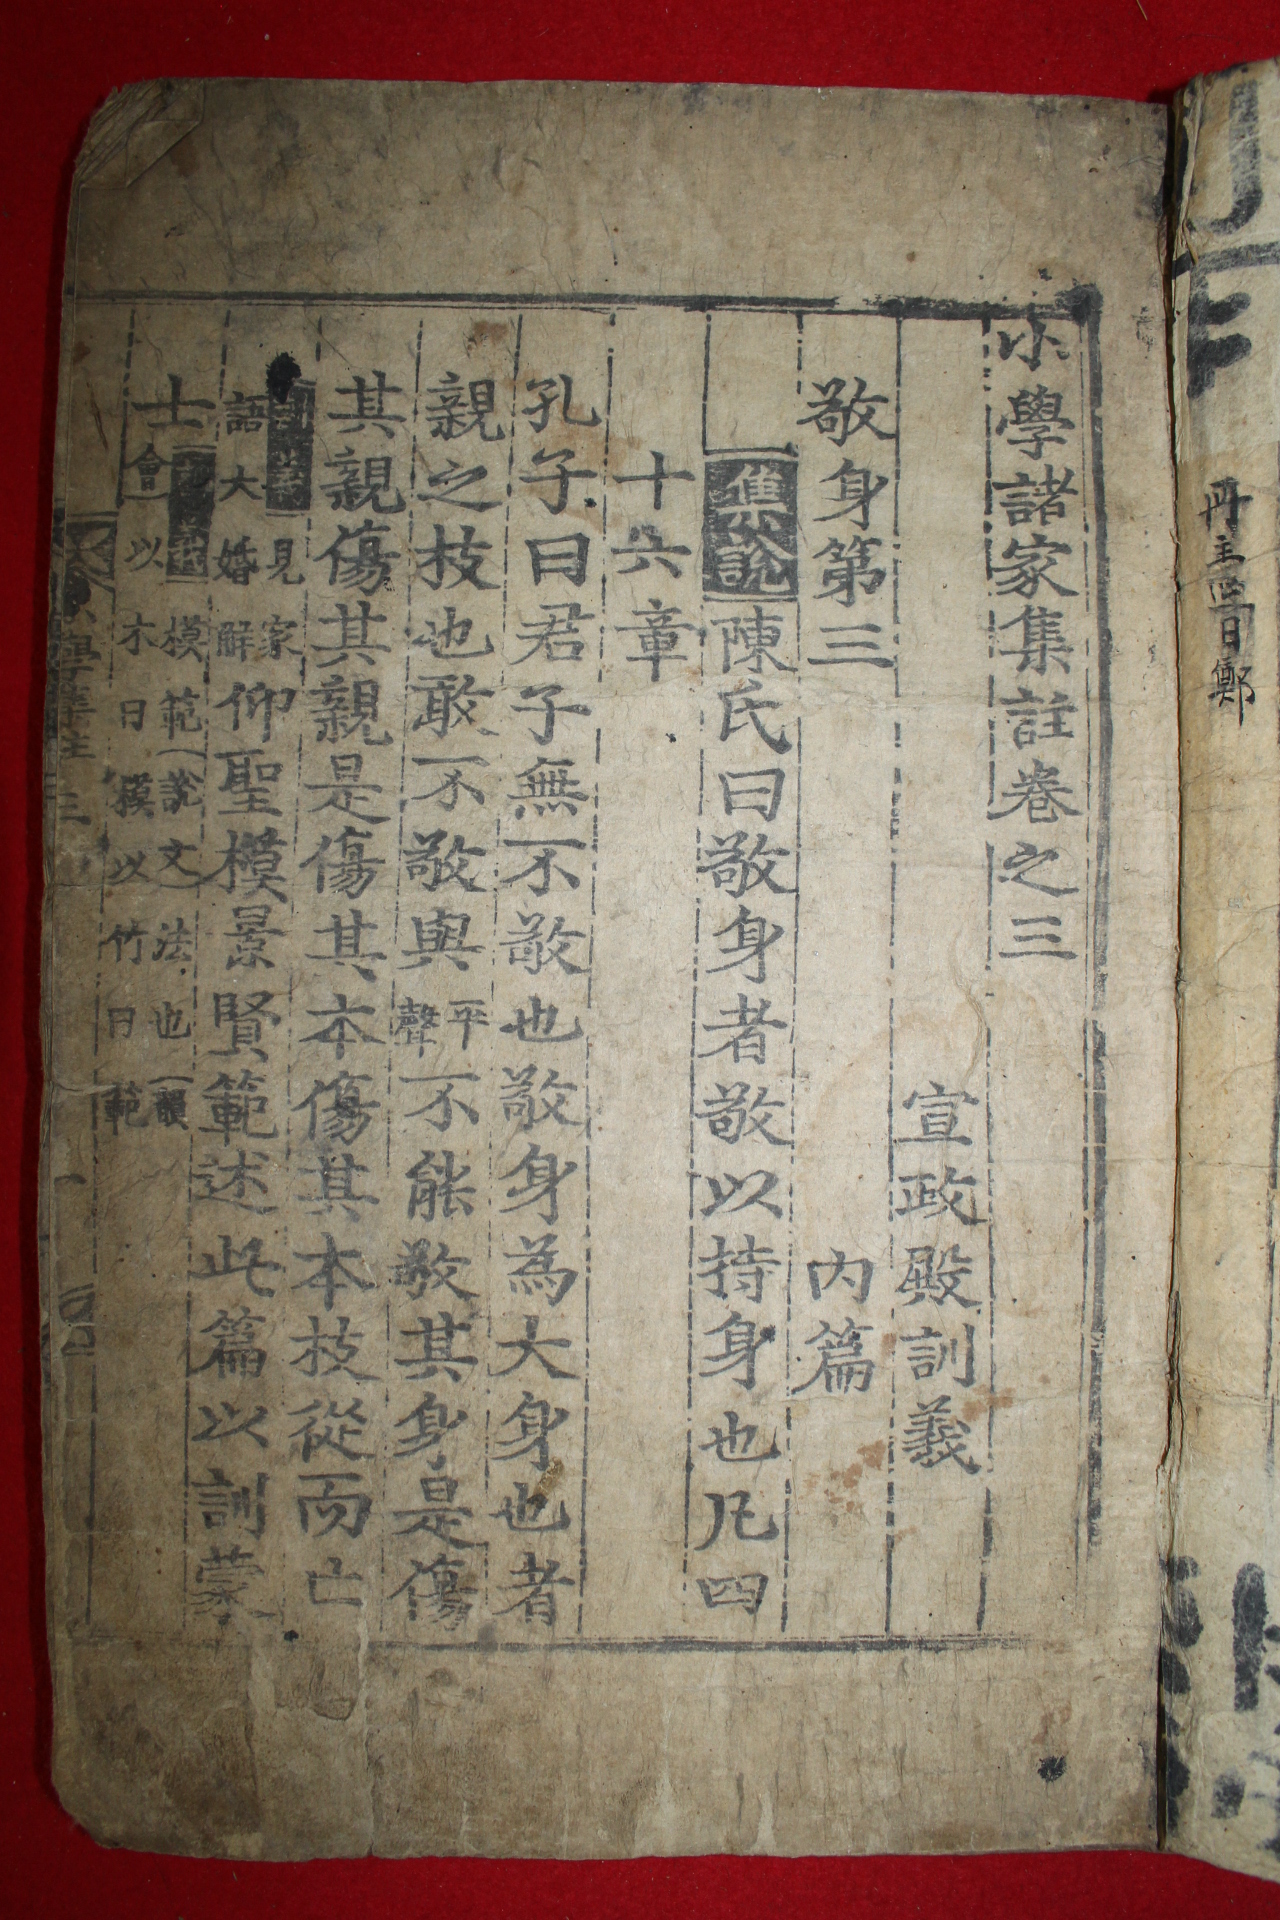 小學諸家集註卷之三
宣政殿訓義
敬身第三 內篇
集說 陳氏曰敬身者敬以持身也凡四
十六章
孔子曰君子無不敬也敬身爲大身也者
親之枝也敢不敬與 平聲 不能敬其身是傷
其親傷其親是傷其本傷其本枝從而亡
見家語大婚解 仰聖模景賢範述此篇以訓蒙
士 模範(說文)法也(韻會)以木曰模以竹曰範
冊主 日鄭